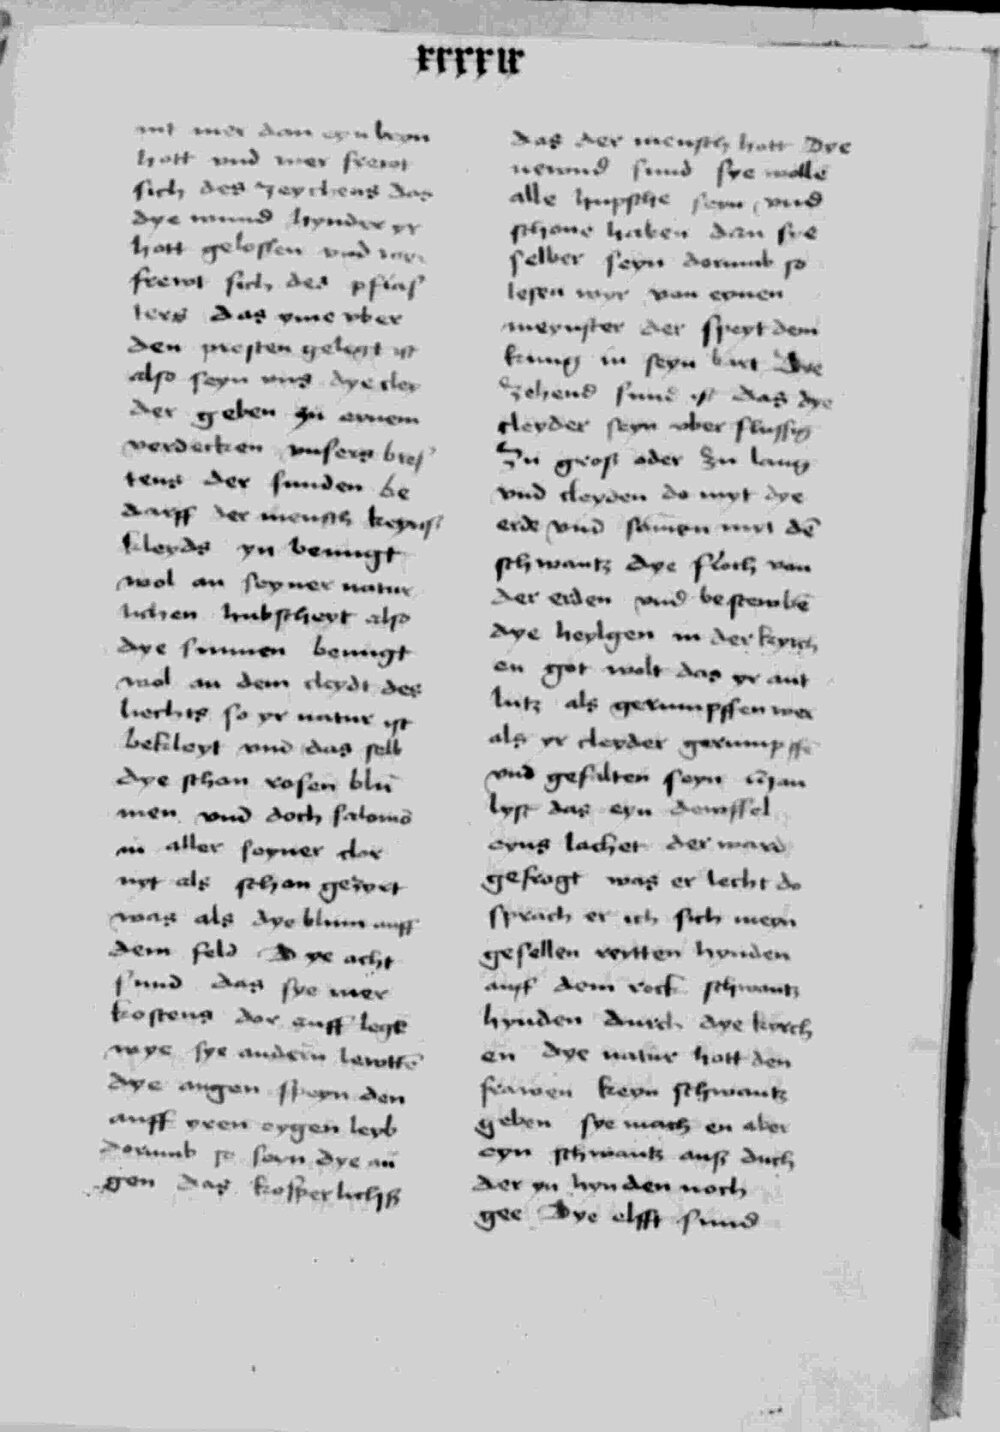 xxxxii
nit mer dan eyn keyn
hott vnd wer frewt
sich des zeychens das
dye wund hynder yr
hott gelossen vnd wer
frewt sich des pflas
ters das yme vber
den presten gelegt ist
also seyn vns dye cley
der geben zu eynem
verdecken vnsers bres
tens der sunden be
darff der mensch keyns
kleyds yn benugt
wol an seyner natur
lichen hubscheyt also
dye sunnen benugt
wol an dem cleydt des
liechts so yr natur ist
bekleyt vnd das selb
dye schon rosen blu
men vnd doch salomō
in aller seyner clor
nyt als schon gezyrt
was als dye blum auff
dem feld Dye acht
sund das sye mer
kostens dor auff legt
wye sye andern lewttē
dye augen speyn den
auff yren eygen leyb
dorumb so seyn dye au
gen das kosperlichst
das der mensch hott Dye
newnd sund sye wollē
alle hupsche seyn vnd
schone haben dan sye
selber seyn dorumb so
lesen wyr von eynen
meynster der speyt dem
kunig in seyn bart Dye
zehend sund ist das dye
cleyder seyn vber flussig
zu groß oder zu lang
vnd cleyden do myt dye
erde vnd samen myt dē
schwantz dye floch von
der erden vnd bestewbē
dye heylgen in der kyrch
en got wolt das yr ant
lutz als gerumpffen wer
als yr cleyder gerumpffē
vnd gefalten seyn Man
lyst das eyn dewffel
eyns lachet der ward
gefrogt was er lecht do
sprach er ich sich meyn
gesellen reytten hynden
auff dem rock schwantz
hynden durch dye kyrch
en dye natur hott den
frawen keyn schwantz
geben sye mach en aber
eyn schwantz auß duch
der yn hynden noch
gee Dye elfft sund